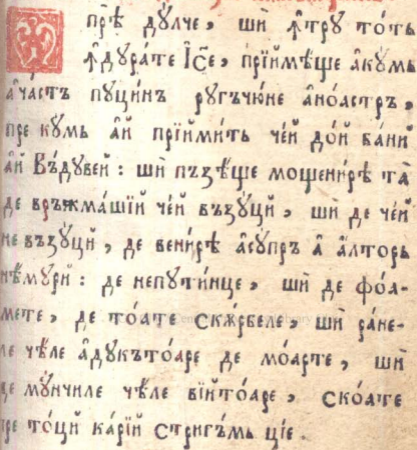 Ѡ прѣ дꙋ́лче, ши ꙟ҆трꙋ то́тъ
ꙟ҆дꙋра́те І҆с҃е, прїимѣ́ще а҆кꙋмь
а҆ча́стъ пꙋцинъ рꙋгъчю́не а҆ноастръ,
пре кꙋмь а҆й прїими́ть че́й до́й ба́ни
а҆й Въ́дꙋвей : ши пъзѣ́ще мошени́рѣ та̀
де връжма́шїй че́й възꙋ́цй, ши де че́й
не възꙋ́цй, де вени́рѣ а҆сꙋпръ а҆ а҆́лторь
нѣ́мꙋрй : де непꙋти́нце, ши де фоа́-
мете, де тоа́те скѫ́рбеле, ши ра́не-
ле чѣ́ле а҆дꙋкътоа́ре де моа́рте, ши
де мꙋ́нчиле чѣ́ле вїйтоа́ре, скоа́те
пре то́цй ка́рїй стригъ́мь ці́е .